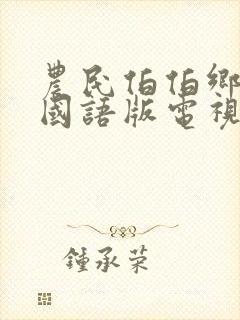 農民伯伯鄉
國語版電視
鍾承荣